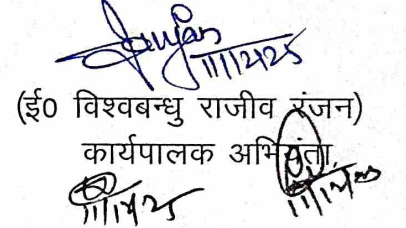 11/12/25
(ई0 विश्वबन्धु राजीव रंजन)
कार्यपालक अभियंता,
11/12/25 11/12/25